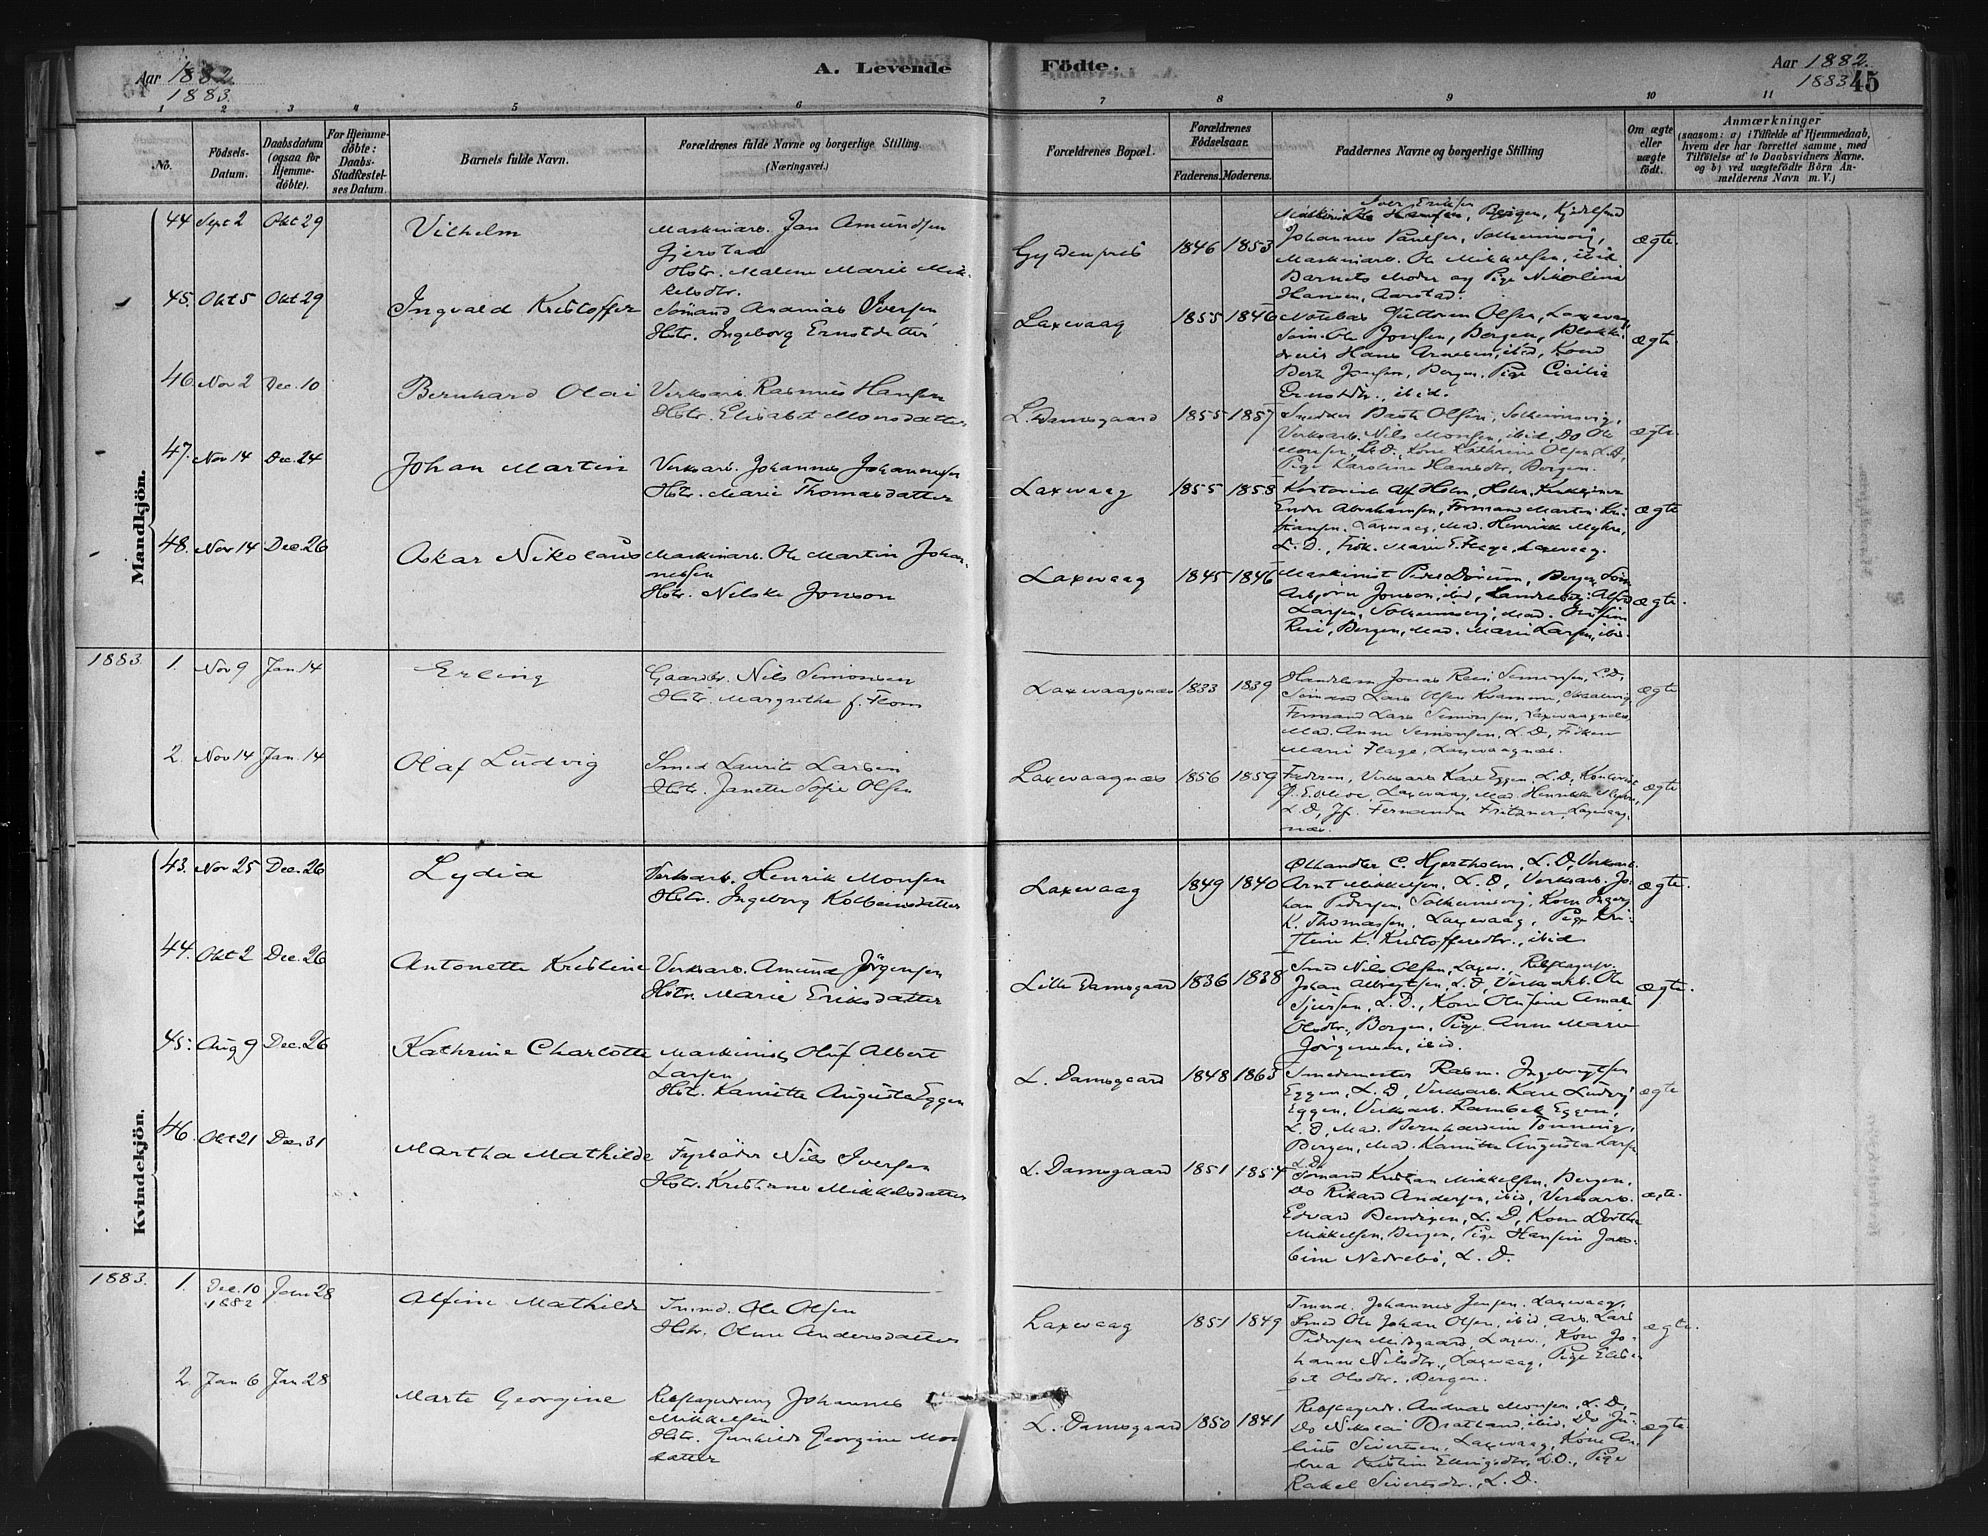 Aar 1882
1883.
A. Levende
Födte.
Aar 1882.
1883
45
1 2 3 4 5 6 7 8 9 10 11
No.
Födsels-
Datum.
Daabsdatum
(ogsaa for
Hjemme-
döbte).
For Hjemme-
döbte:
Daabs-
Stadfæstel-
ses Datum.
Barnets fulde Navn.
Forældrenes fulde Navne og borgerlige Stilling
(Næringsvei.)
Forældrenes Bopæl.
Forældrenes
Födselsaar.
Faderens. Moderens.
Faddernes Navne og borgerlige Stilling
Om ægte
eller
uægte
födt.
Anmærkninger
(saasom: a) i Tilfælde af Hjemmedaab,
hvem der har forrettet samme, med
Tilföielse af to Daabsvidners Navne,
og b) ved uægtefödte Börn An-
melderens Navn m. V.)
Mandkjön.
44 Sept 2 Okt 29
Vilhelm
Maskinarb. Jan Amundsen
Gjerstad
Hstr. Malene Marie Mik-
kelsdtr.
1846 1853
Iver Eriksen
Hansen, Bergen,
Johannes Paulsen, Solheimsvig,
Maskinarb. Ole Mikkelsen, ibid
Barnets Moder og Pige Nikolina
Hansen, Aarstad.
ægte.
45. Okt 5 Okt 29
Ingvald Kristoffer
Sömand Ananias Iversen
Hstr. Ingeborg Ernstdatter
Laxevaag
1855 1846
Notebas Guttorm Olsen, Laxevaag,
Söm. Ole Jonsen, Bergen, Blokke-
dreier Hans Arnesen, ibid, Kone
Berte Jonsen, Bergen, Pige Cicilie
Ernstdtr., ibid.
ægte.
46. Nov 2 Dec. 10
Bernhard Olai
Verksarb. Rasmus Hansen
Hstr. Elisabet Monsdatter
L. Damsgaard
1855 1857
Snedker Olsen, Solheimsvig,
Verksarb. Nils Monsen, ibid, Do Ole
Monsen, L. D., Kone Kathrine Olsen, L. D,
Pige Karoline Hansdtr., Bergen.
ægte.
47. Nov 14 Dec. 24
Johan Martin
Verksarb. Johannes Johannesen
Hstr. Marie Thomasdatter
Laxevaag
1855 1858
Kontorist Alf Holm, Holm, Kirkesanger
Endre Abrahamsen, Formand Martin Kri-
stiansen, Laxevaag, Mad. Henrikke Myhre,
L. D., Frök. Marie E. Flage, Laxevaag.
ægte
48. Nov 14 Dec. 26
Oskar Nikolaus
Maskinarb. Ole Martin Johan-
nesen
Hstr. Nilske Jonson
Laxevaag
1845 1846
Maskinist Peder Dörum, Bergen, Söm.
Asbjörn Jonson, ibid, Handelsbtj. Alfred
Larsen, Solheimsvig, Mad.
Bergen, Mad. Marie Larsen, ibid.
ægte.
1883. 1. Nov 9 Jan. 14
Erling
Gaardbr. Nils Simonsen
Hstr. Margrethe f. Flom
Laxevaagsnæs
1833 1839
Handlsm. Jonas Rein Simonsen, L. D,
Sömand Lars Olsen Kvamme, Skaalevig
Formand Lars Simonsen, Laxevaagsnæs,
Mad. Anne Simonsen, L. D, Fröken
Marie Flage, Laxevaagnæs.
ægte
2. Nov 14 Jan. 14
Olaf Ludvig
Smed Laurits Larsen
Hstr. Janette Sofie Olsen
Laxevaagnæs
1856 1859
Faderen, Verksarb Karl Eggen, L. D, Kontorist
Laxevaag, Mad. Henrikke Myhre,
L. D, Jf. Fernanda Fritzner, Laxevaag-
næs.
ægte
Kvindekjön.
43. Nov 25 Dec. 26
Lydia
Verksarb. Henrik Monsen
Hstr. Ingeborg Kolbeinsdatter
Laxevaag
1849 1840
Ölhandler C. Hjortholm, L. D, Verksarb.
Arnt Mikkelsen, L. D, Verksarb. Jo-
han Pedersen, Solheimsvig, Kone Ingeb.
K. Thomassen, Laxevaag, Pige Kri-
stine K. Kristoffersdtr., ibid
ægte.
44. Okt 2 Dec. 26
Antonette Kristine
Verksarb. Amund Jörgensen
Hstr. Marie Eriksdatter
Lille Damsgaard
1836 1838
Smed Nils Olsen, Laxev., Rebslagersv.
Johan Albregtsen, L. D, Verksarb. Ole
Sjursen, L. D., Kone Olufine Amalie
Olsdtr., Bergen, Pige Anne Marie
Jörgensen, ibid.
ægte.
45. Aug 9 Dec. 26
Kathrine Charlotte
Maskinist Oluf Albert
Larsen
Hstr. Kamitte Augusta Eggen
L. Damsgaard
1848 1863
Smedemester Rasm. Ingebrigtsen
Eggen, L. D, Verksarb. Karl Ludvig
Eggen, Verksarb. Eggen,
L. D, Mad. Bernhardine Tönning,
Bergen, Mad. Kamitte Augusta Larsen
L. D.
ægte
46. Okt 21 Dec. 31
Martha Mathilde
Fyrböder Nils Iversen
Hstr. Kristiane Mikkelsdatter
L. Damsgaard
1851 1854
Sömand Kristian Mikkelsen, Bergen,
Do Rikard Andersen, ibid, Verksarb.
Edvard Bendigsen, L. D, Kone Dorthe
Mikkelsen, Bergen, Pige Hansine Jako-
bine Nedrebö, L. D.
ægte.
1883. 1. Dec. 10
1882 Jan 28
Alfine Mathilde
Tmmd. Ole Olsen
Hstr. Oline Andersdatter
Laxevaag
1851 1849
Tmmd. Johannes Jensen, Laxevaag,
Smed Ole Johan Olsen, ibid, Arb. Lars
Pedersen Midgaard, Laxev., Kone Jo-
hanne Nilsdtr., Laxevaag, Pige Elisa-
bet Olsdtr., Bergen.
ægte.
2. Jan 6 Jan 28
Marte Georgine
Rebslagersvend Johannes
Mikkelsen
Hstr. Gunhilde Georgine Mons-
datter
L. Damsgaard
1850 1841
Rebslagersv. Andreas Monsen, L. D,
Do Nikolai Bratland, ibid, Do Ju-
lius Sivertsen, Laxevaag, Kone An-
drea Kristine Ellingsdtr., L. D., Pige
Rakel Sivertsdtr., L. D.
ægte.